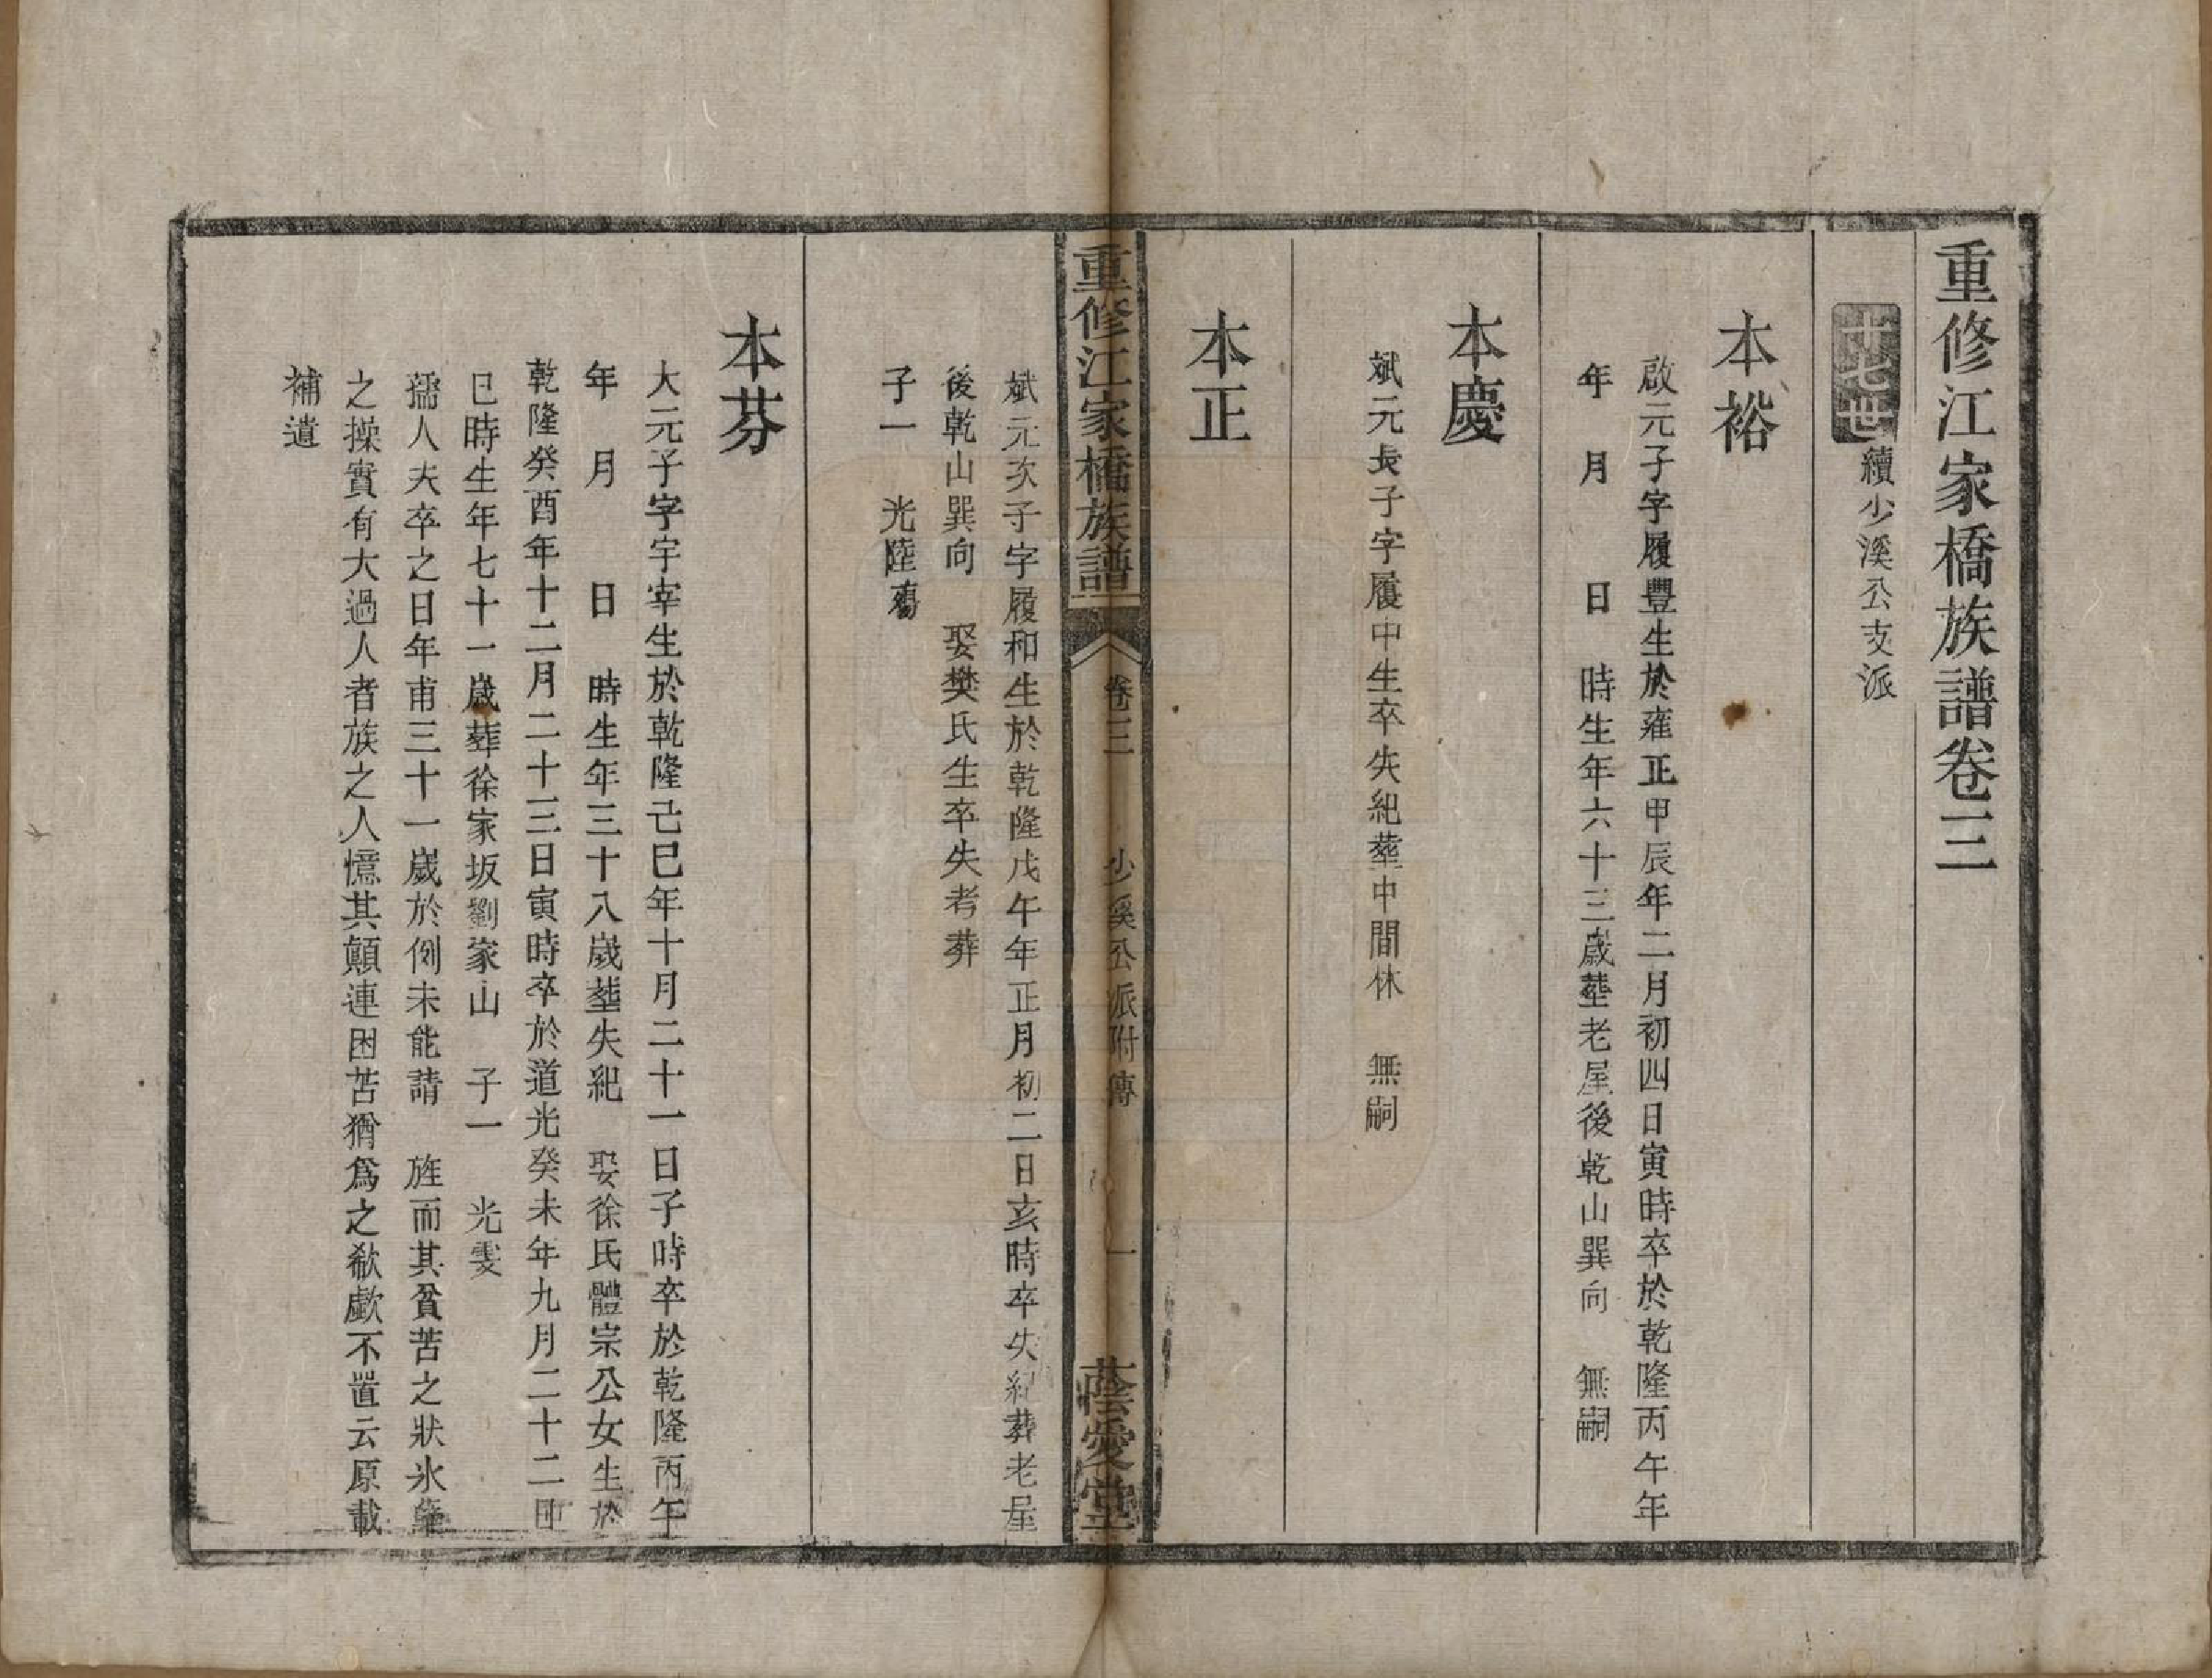 重修江家橋族譜卷三
十七世 續少溪公支派
本裕
啟元子字履豐生於雍正甲辰年二月初四日寅時卒於乾隆丙午年
年 月 日 時生年六十三歲塟老屋後乾山巽向 無嗣
本慶
斌元長子字履中生卒失紀塟中間林 無嗣
本正
重修江家橋族譜 卷三 少溪公派附傳 一 蔭愛堂
斌元次子字履和生於乾隆戊午年正月初二日亥時卒失紀葬老屋
後乾山巽向 娶樊氏生卒失考葬
子一 光陸殤
本芬
大元子字宇宰生於乾隆己巳年十月二十一日子時卒於乾隆丙午
年 月 日 時生年三十八歲塟失紀 娶徐氏體宗公女生於
乾隆癸酉年十二月二十三日寅時卒於道光癸未年九月二十二日
巳時生年七十一歲葬徐家坂劉家山 子一 光雯
孺人夫卒之日年甫三十一歲於例未能請 旌而其貧苦之狀氷蘗
之操實有大過人者族之人憶其顛連困苦猶為之欷歔不置云原載
補遺